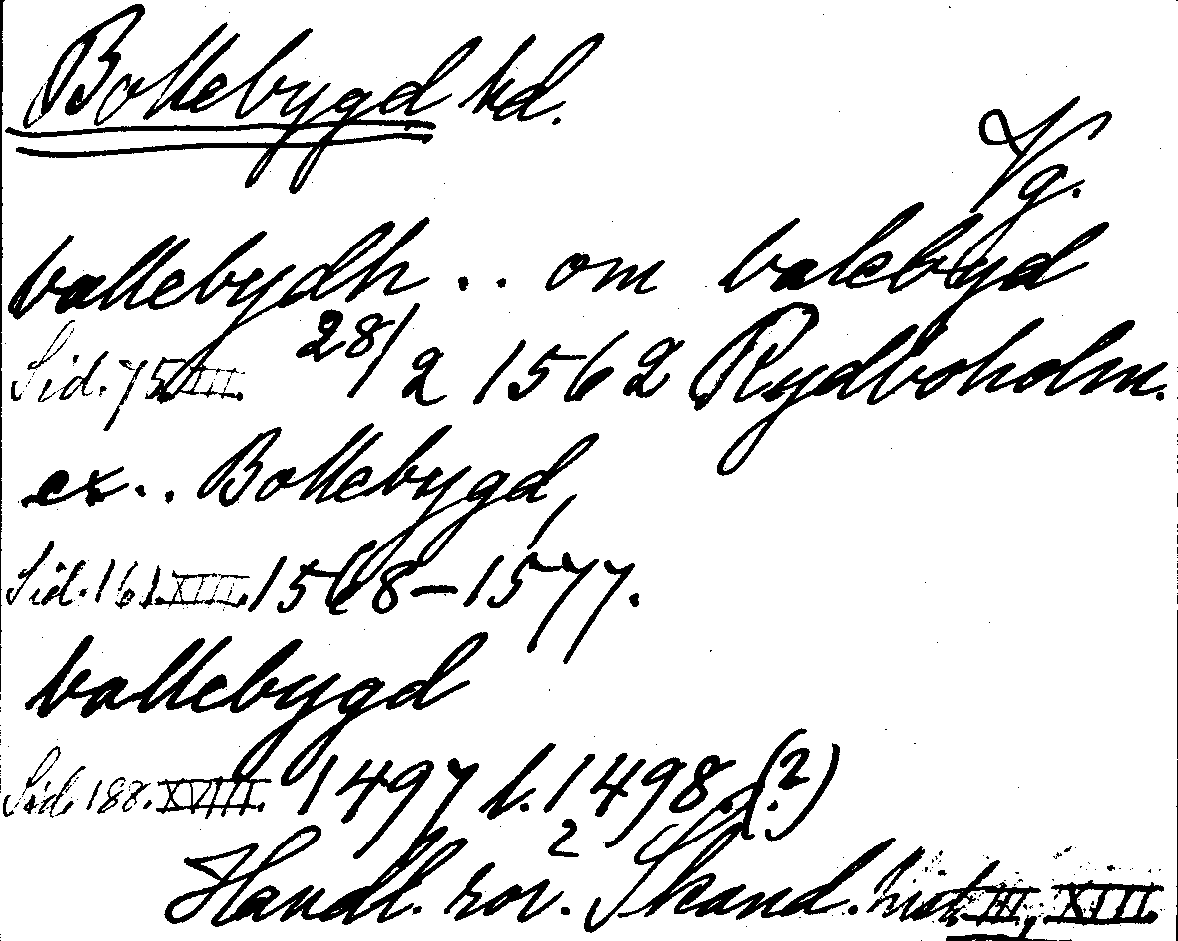 Bollebygd hd.
Vg.
ballebydh .. om balebyd
Sid. 75 III. 28/2 1562 Rydboholm.
ex .. Bollebygd,
Sid. 161. XIII. 1568–1577.
ballebygd
Sid. 188. XVIII. 1497 l. 1498. (?)
2
Handl. rör. Skand. hist. III, XIII.